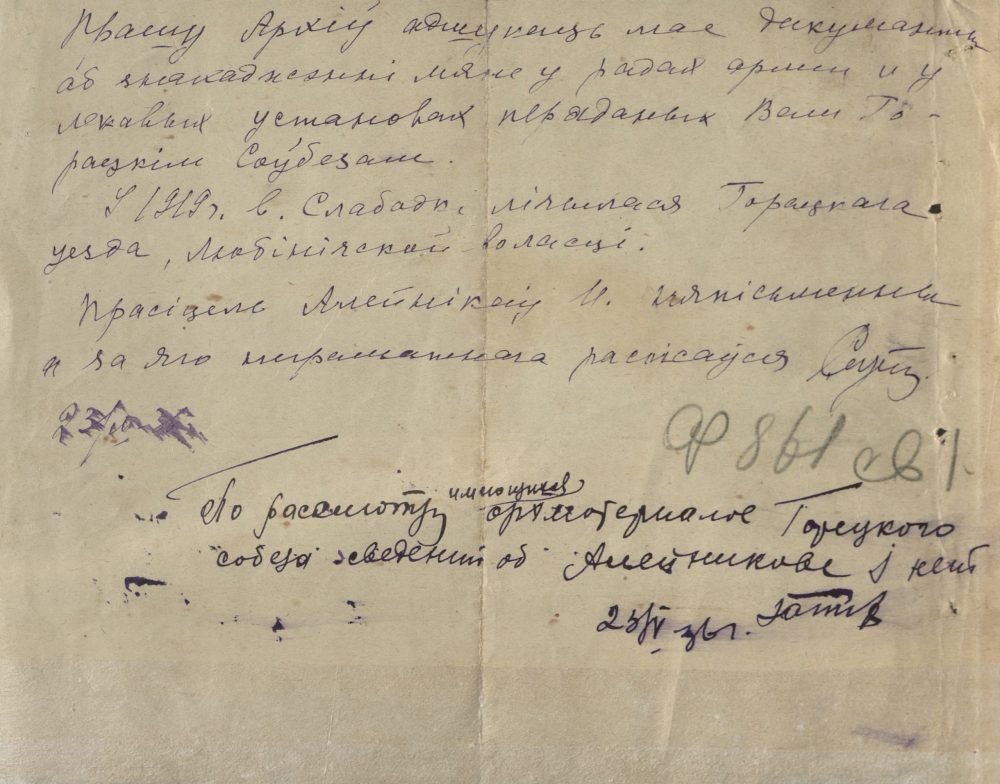 Прашу Архіў адшукаць мае дакуманты
аб знахаджэнні мяне у радах арміи и у
лекавых установах пераданых Вам Го-
рацкім Соўбезам.
У 1919г. в. Слабодка лічылася Горацкага
уезда, Любінічской воласці.
Прасіцель Алейнікаў И. няпісьменны
и за яго распісаўся
Ф 861 св 1
По рассмотру имеющихся архматериалов Горецкого
собеза сведений об Алейникове нет
23/V 36г.